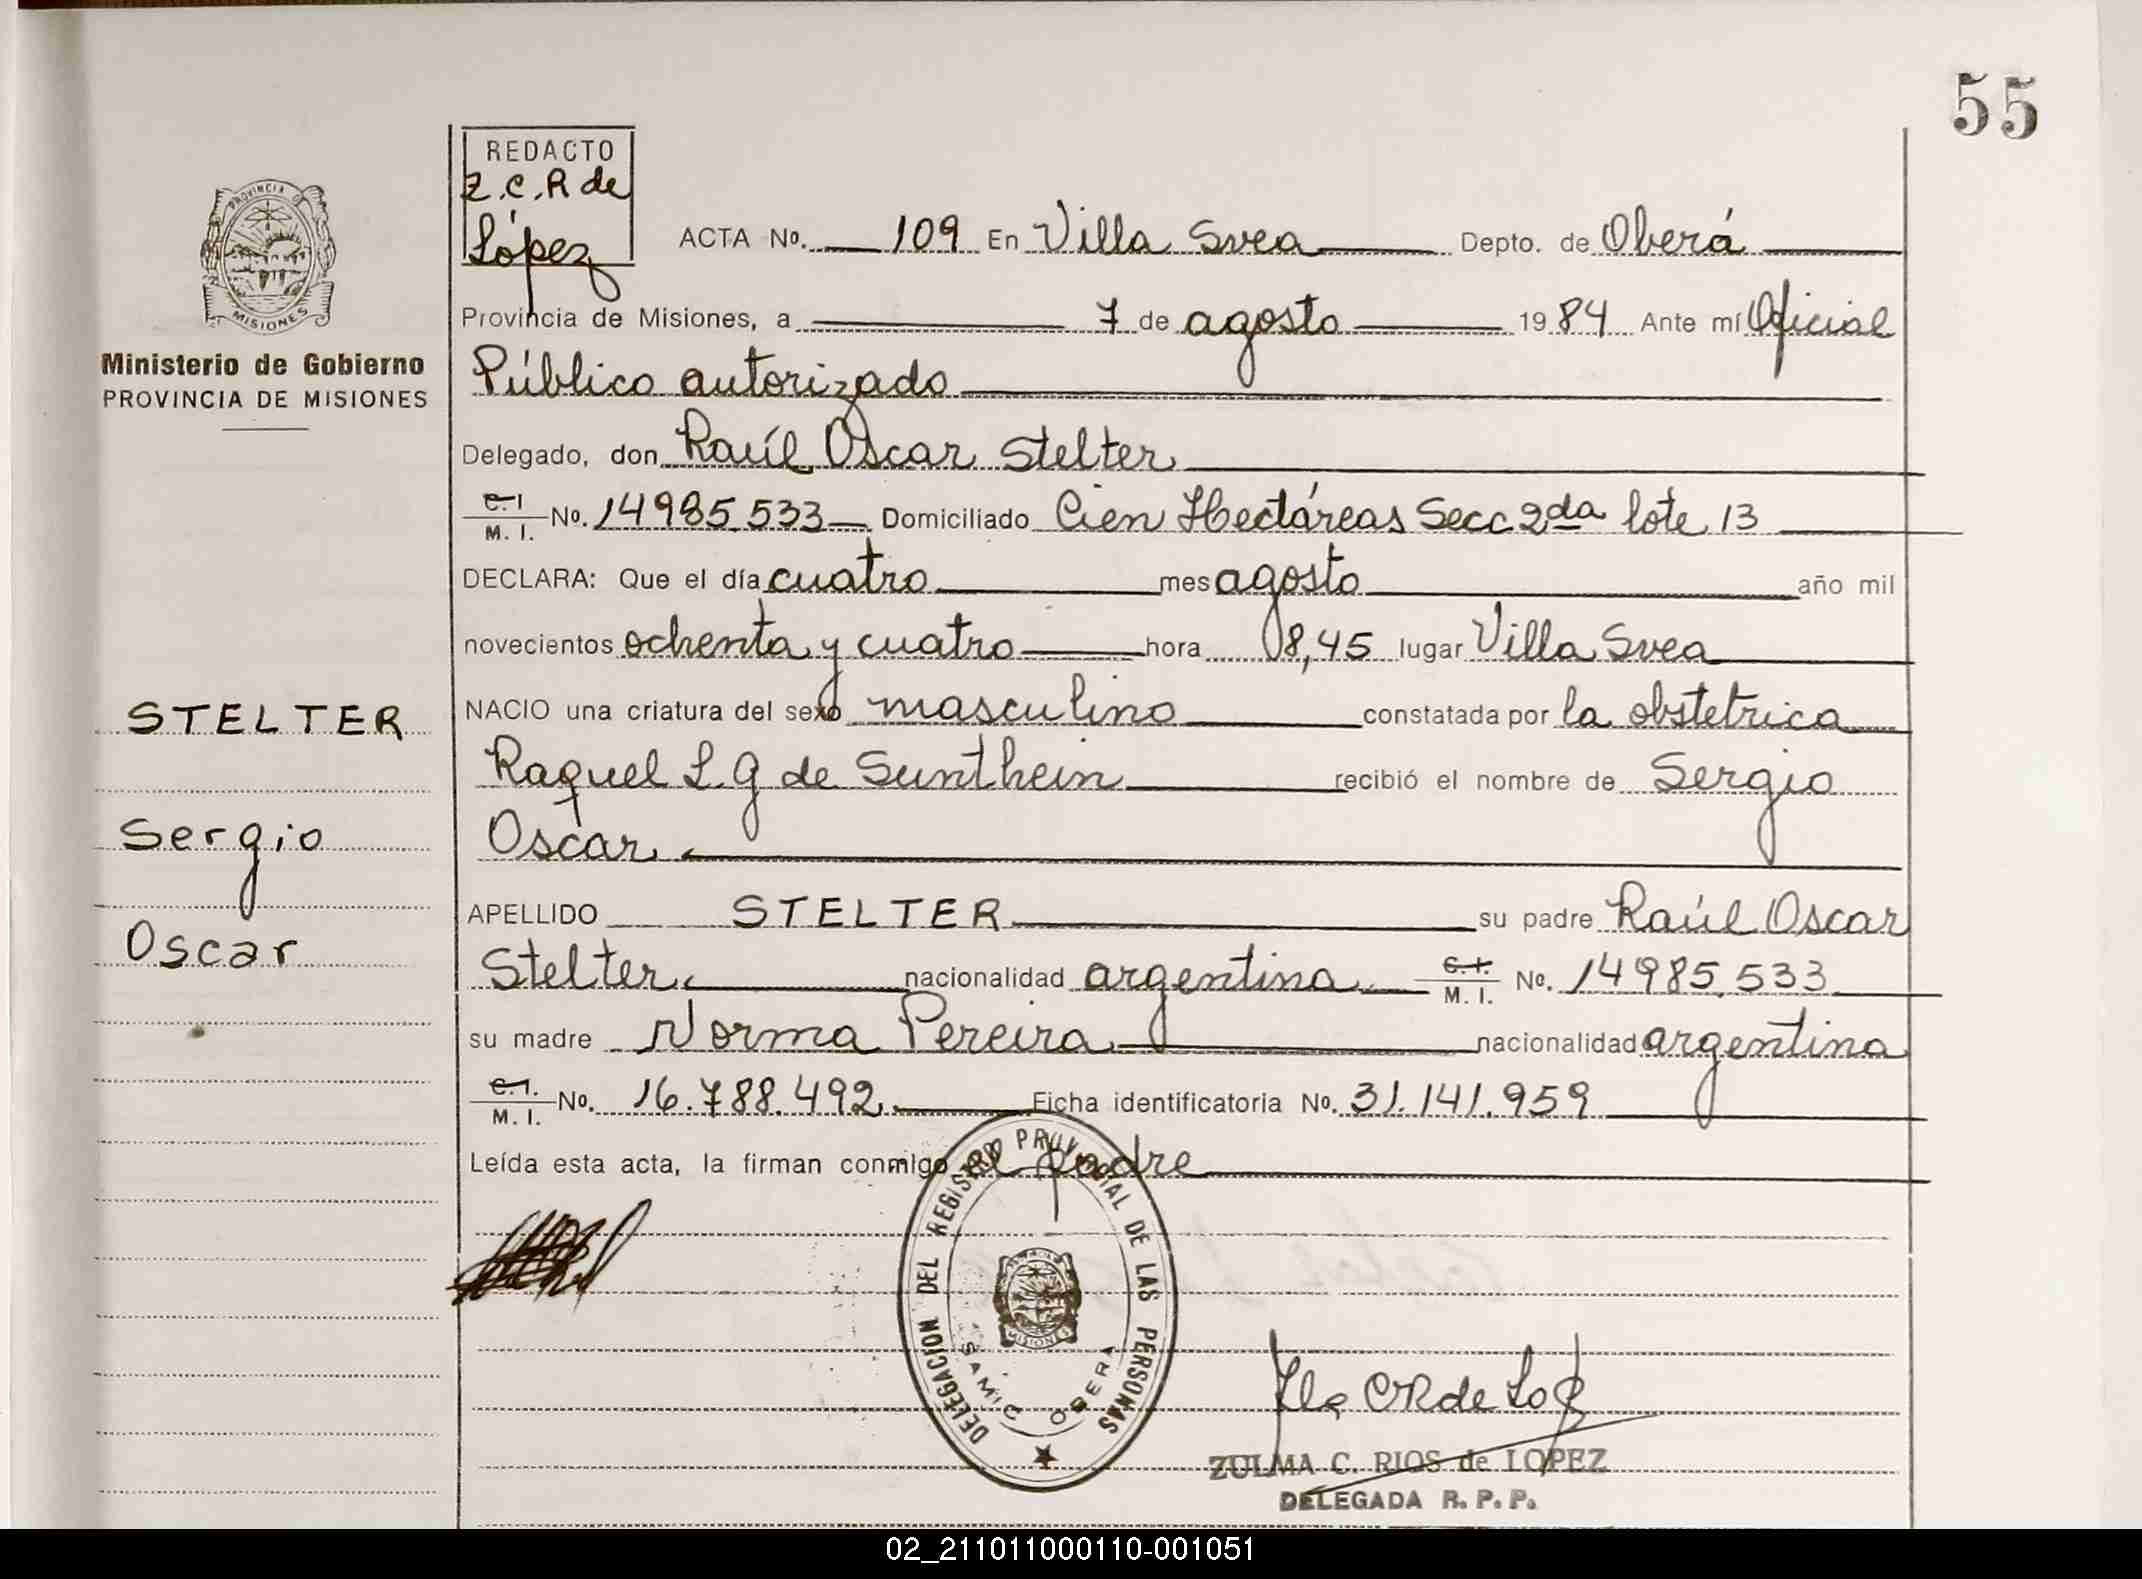 55
REDACTO
Z.C.R de
López
PROVINCIA DE
MISIONES
Ministerio de Gobierno
PROVINCIA DE MISIONES
ACTA No. 109 En Villa Svea Depto. de Oberá
Provincia de Misiones, a 7 de agosto 1984 Ante mí Oficial
Público autorizado
Delegado, don Raúl Oscar Stelter
C.I. M. I. No. 14985.533 Domiciliado Cien Hectáreas Secc 2da lote 13
DECLARA: Que el día cuatro mes agosto año mil
novecientos ochenta y cuatro hora 08,45 lugar Villa Svea
NACIO una criatura del sexo masculino constatada por la obstetrica
Raquel L. G de Sunthein recibió el nombre de Sergio
Oscar
APELLIDO STELTER su padre Raúl Oscar
Stelter nacionalidad argentina C.I. M. I. No. 14985.533
su madre Norma Pereira nacionalidad argentina
C.I. M. I. No. 16.788.492 Ficha identificatoria No. 31.141.959
Leída esta acta, la firman conmigo el padre
STELTER
Sergio
Oscar
DELEGACION DEL REGISTRO PROVINCIAL DE LAS PERSONAS
MISIONES
SAMIC OBERA
ZULMA C. RIOS de LOPEZ
DELEGADA R. P. P.
02_211011000110-001051